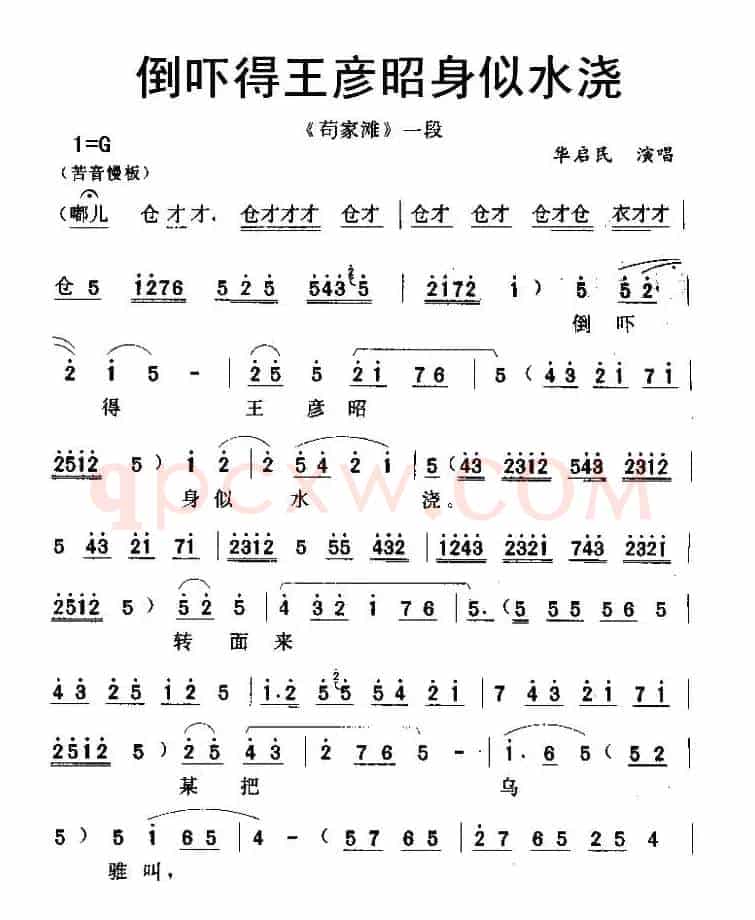 倒吓得王彦昭身似水浇
《苟家滩》一段
1=G
华启民 演唱
(苦音慢板)
(嘟儿 仓 才才. 仓才才才 仓才 | 仓才 仓才 仓才仓 衣才才 |
仓 5 1276 5 2 5 5435 | 2172 1 ) 5 5 2
倒 吓
2 1 5 - | 2 5 5 2 1 7 6 | 5 ( 4 3 2 1 7 1 |
得 王 彦 昭
2512 5 ) 1 2 | 2 5 4 2 1 | 5 ( 43 2312 543 2312 |
身 似 水 浇。
5 43 21 71 | 2312 5 55 432 | 1243 2321 743 2321 |
2512 5 ) 5 2 5 | 4 3 2 1 7 6 | 5. ( 5 5 5 5 6 5 |
转 面 来
4 3 2 5 1 2 5 | 1.2 5 5 5 4 2 1 | 7 4 3 2 1 7 1 |
2512 5 ) 2 5 4 3 | 2 7 6 5 - | 1. 6 5 ( 5 2
某 把 乌
5 ) 5 1 6 5 | 4 - ( 5 7 6 5 | 2 7 6 5 2 5 4 |
骓 叫,
qpcxw.com